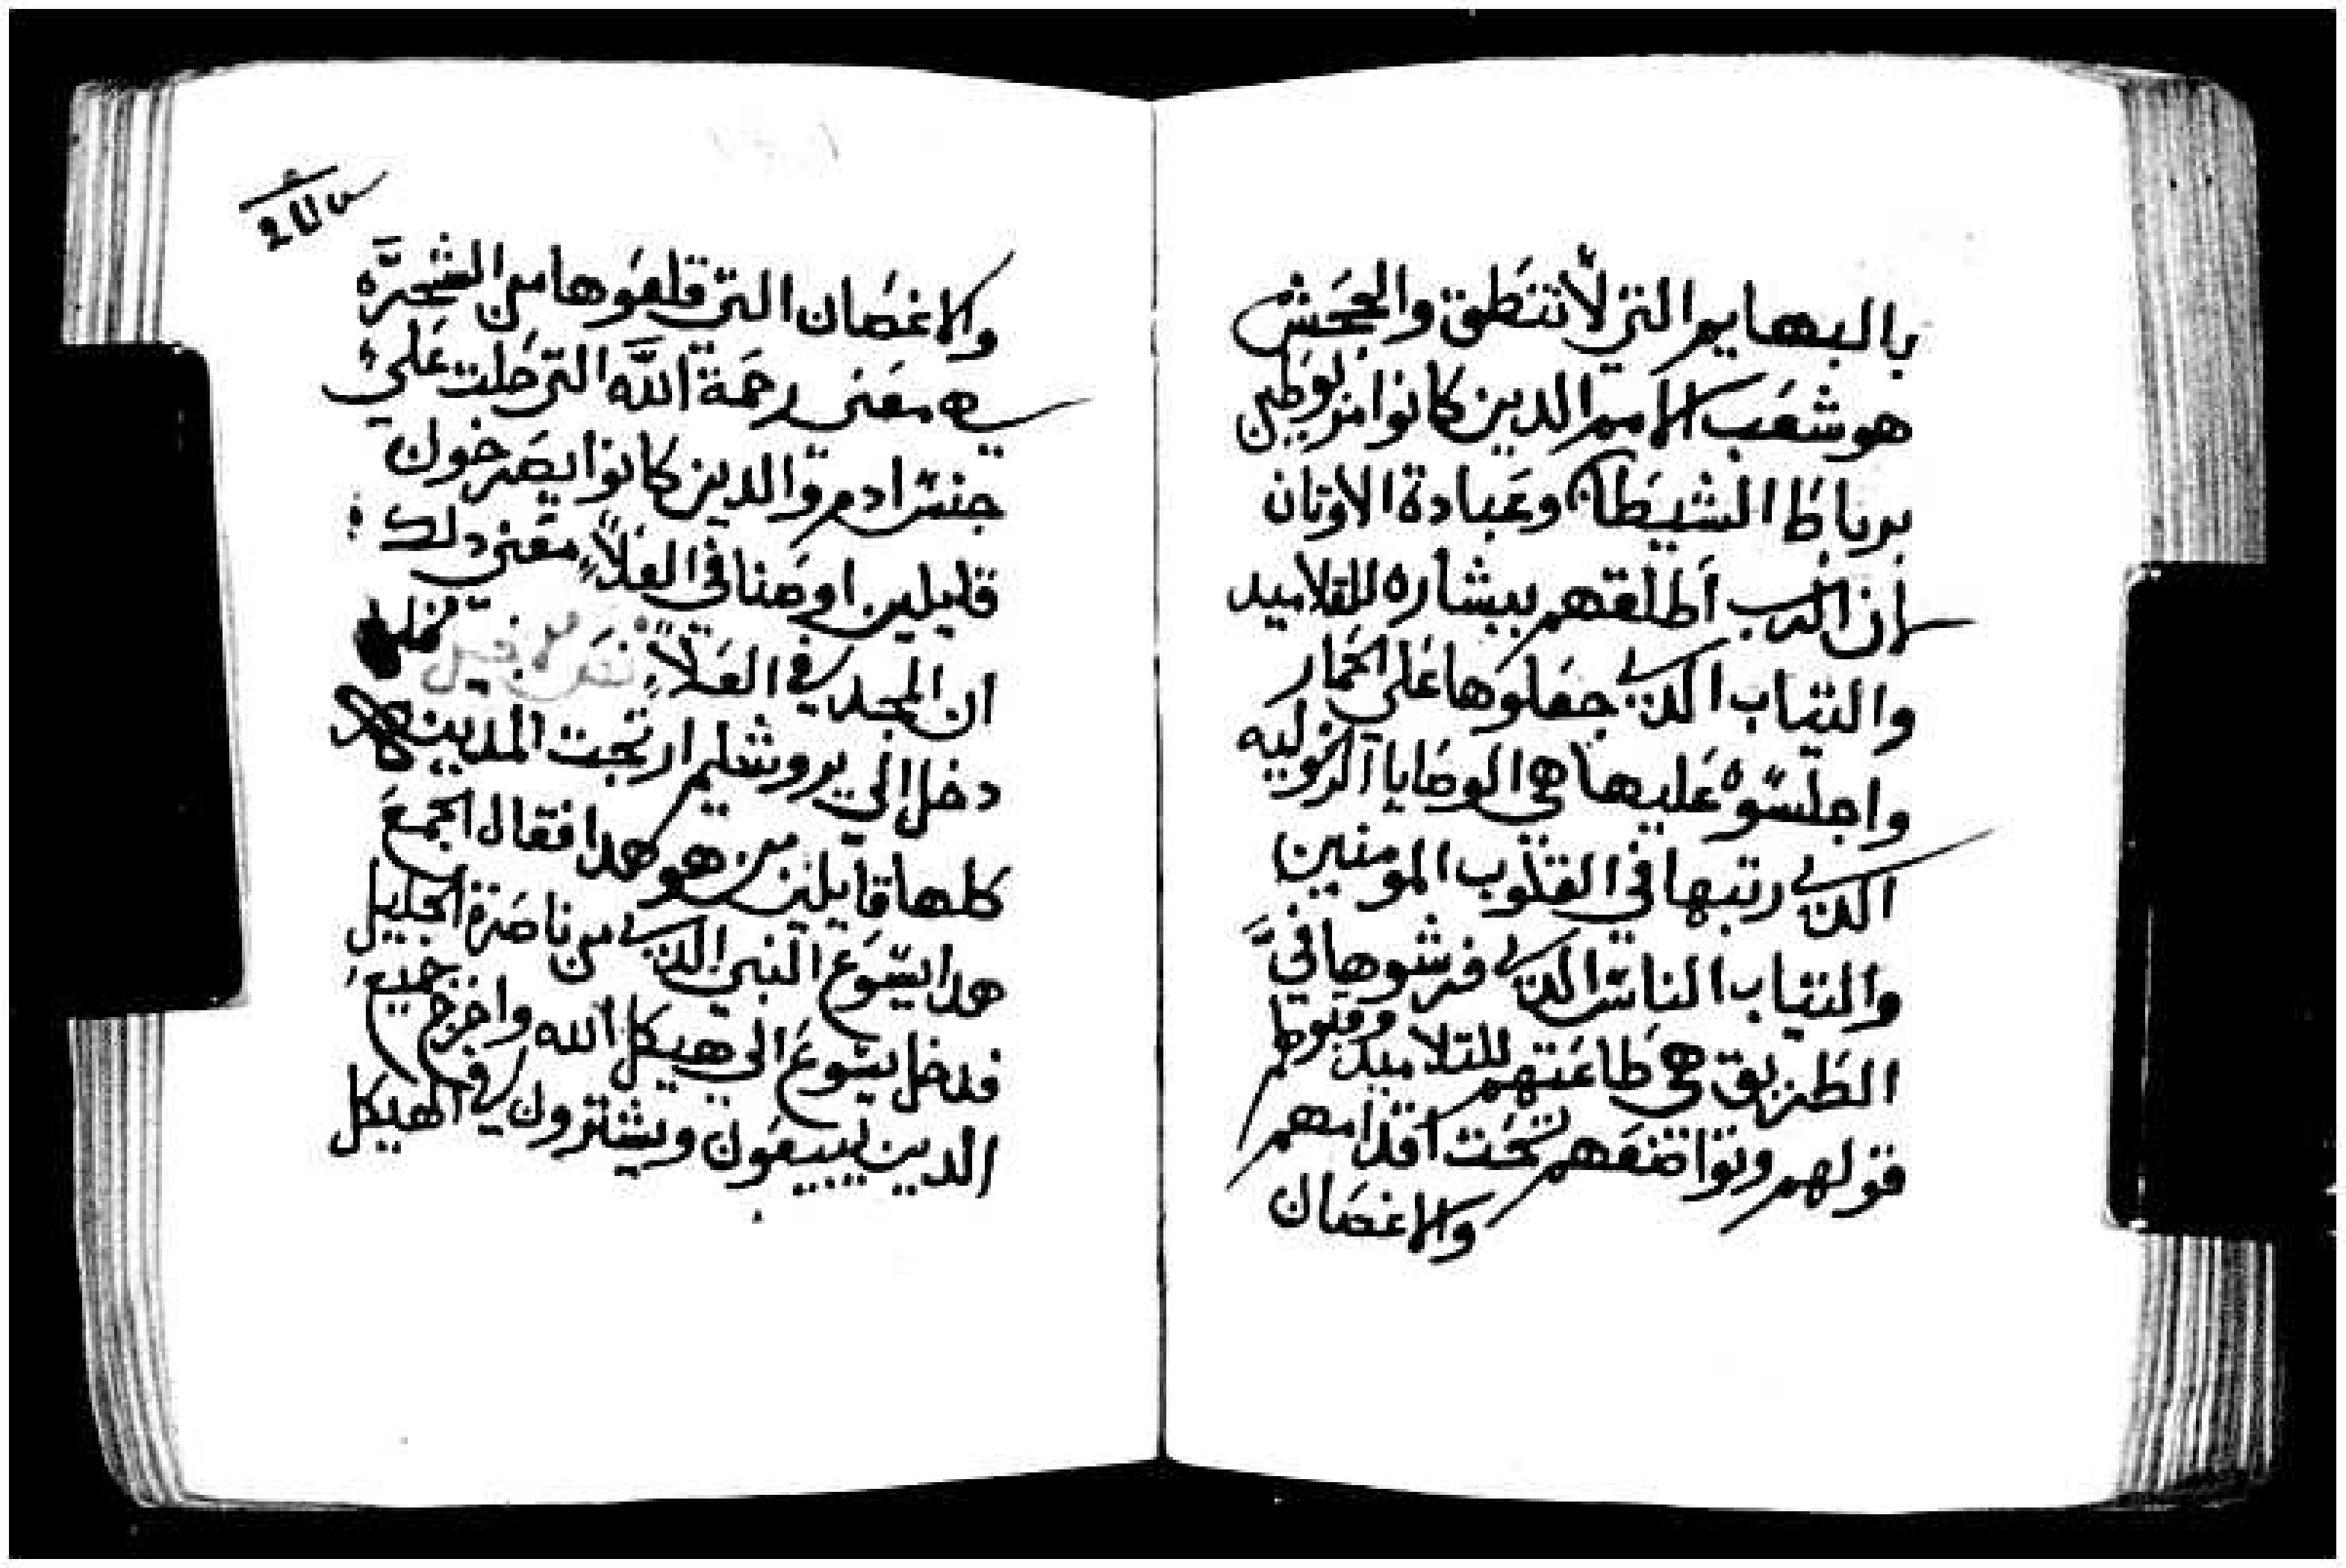 بالبهايم التي لا تنطق والجحش
هو شعب الامم الدين كانوا مربوطين
برباط الشيطان وعبادة الاوتان
ان الرب اطلقهم ببشاره التلاميد
والتياب الدي جعلوها علي الحمار
واجلسوه عليها هي الوصايا
الدي رتبها في القلوب المومنين
والتياب الناس الدي فرشوها في
الطريق هي طاعتهم للتلاميد وقبولهم
قولهم وتواضعهم تحت اقدامهم
والاغصان
والاغصان التي قلعوها من الشجره
هي معني رحمة الله التي حلت علي
جنس ادم والدين كانوا يصرخون
قايلين اوصنا في العلاء معني دلك
ان المجد في العلاء نص الانجيل فلما
دخل الي يروشليم ارتجت المدينه
كلها قايلين من هو هدا فقال الجمع
هدا يسوع النبي الدي من ناصرة الجليل
فدخل يسوع الي هيكل الله واخرج جميع
الدين يبيعون ويشترون في الهيكل